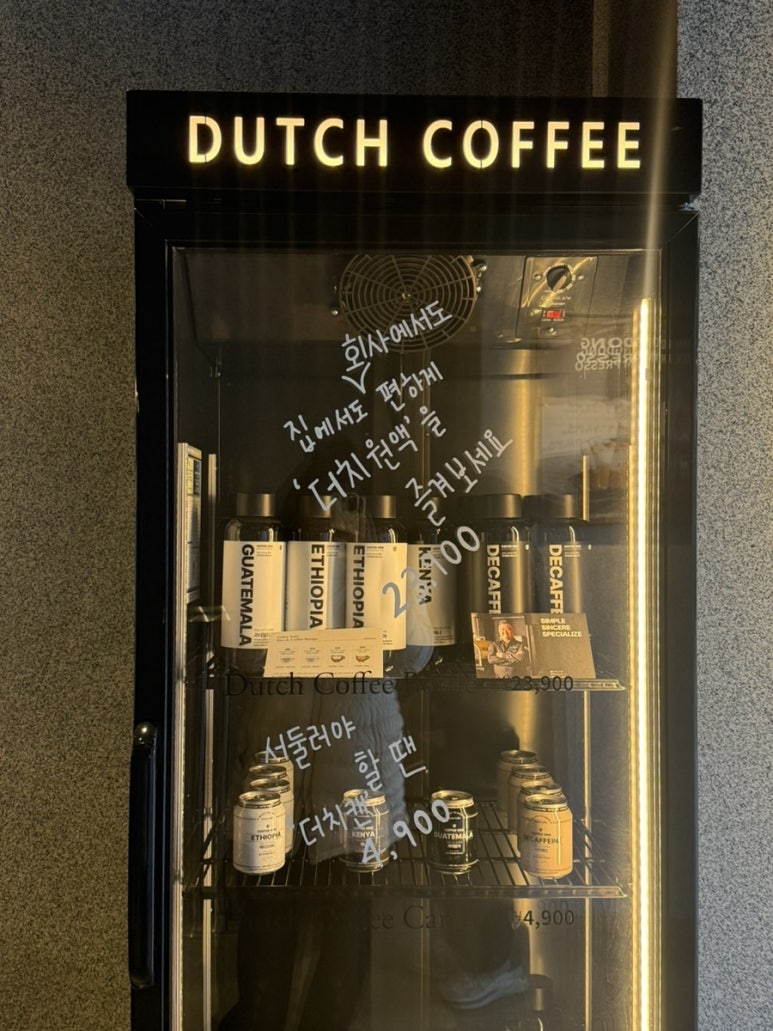 DUTCH COFFEE
회사에서도
집에서도 편하게
'더치원액'을
즐겨보세요
23,100
GUATEMALA
ETHIOPIA
ETHIOPIA
KENYA
DECAFFE
DECAFFE
SIMPLE
SINCERE
SPECIALIZE
Dutch Coffee
23,900
서둘러야
할 땐
'더치캔'
4,900
ETHIOPIA
KENYA
GUATEMALA
DECAFFEIN
Coffee Can
₩4,900